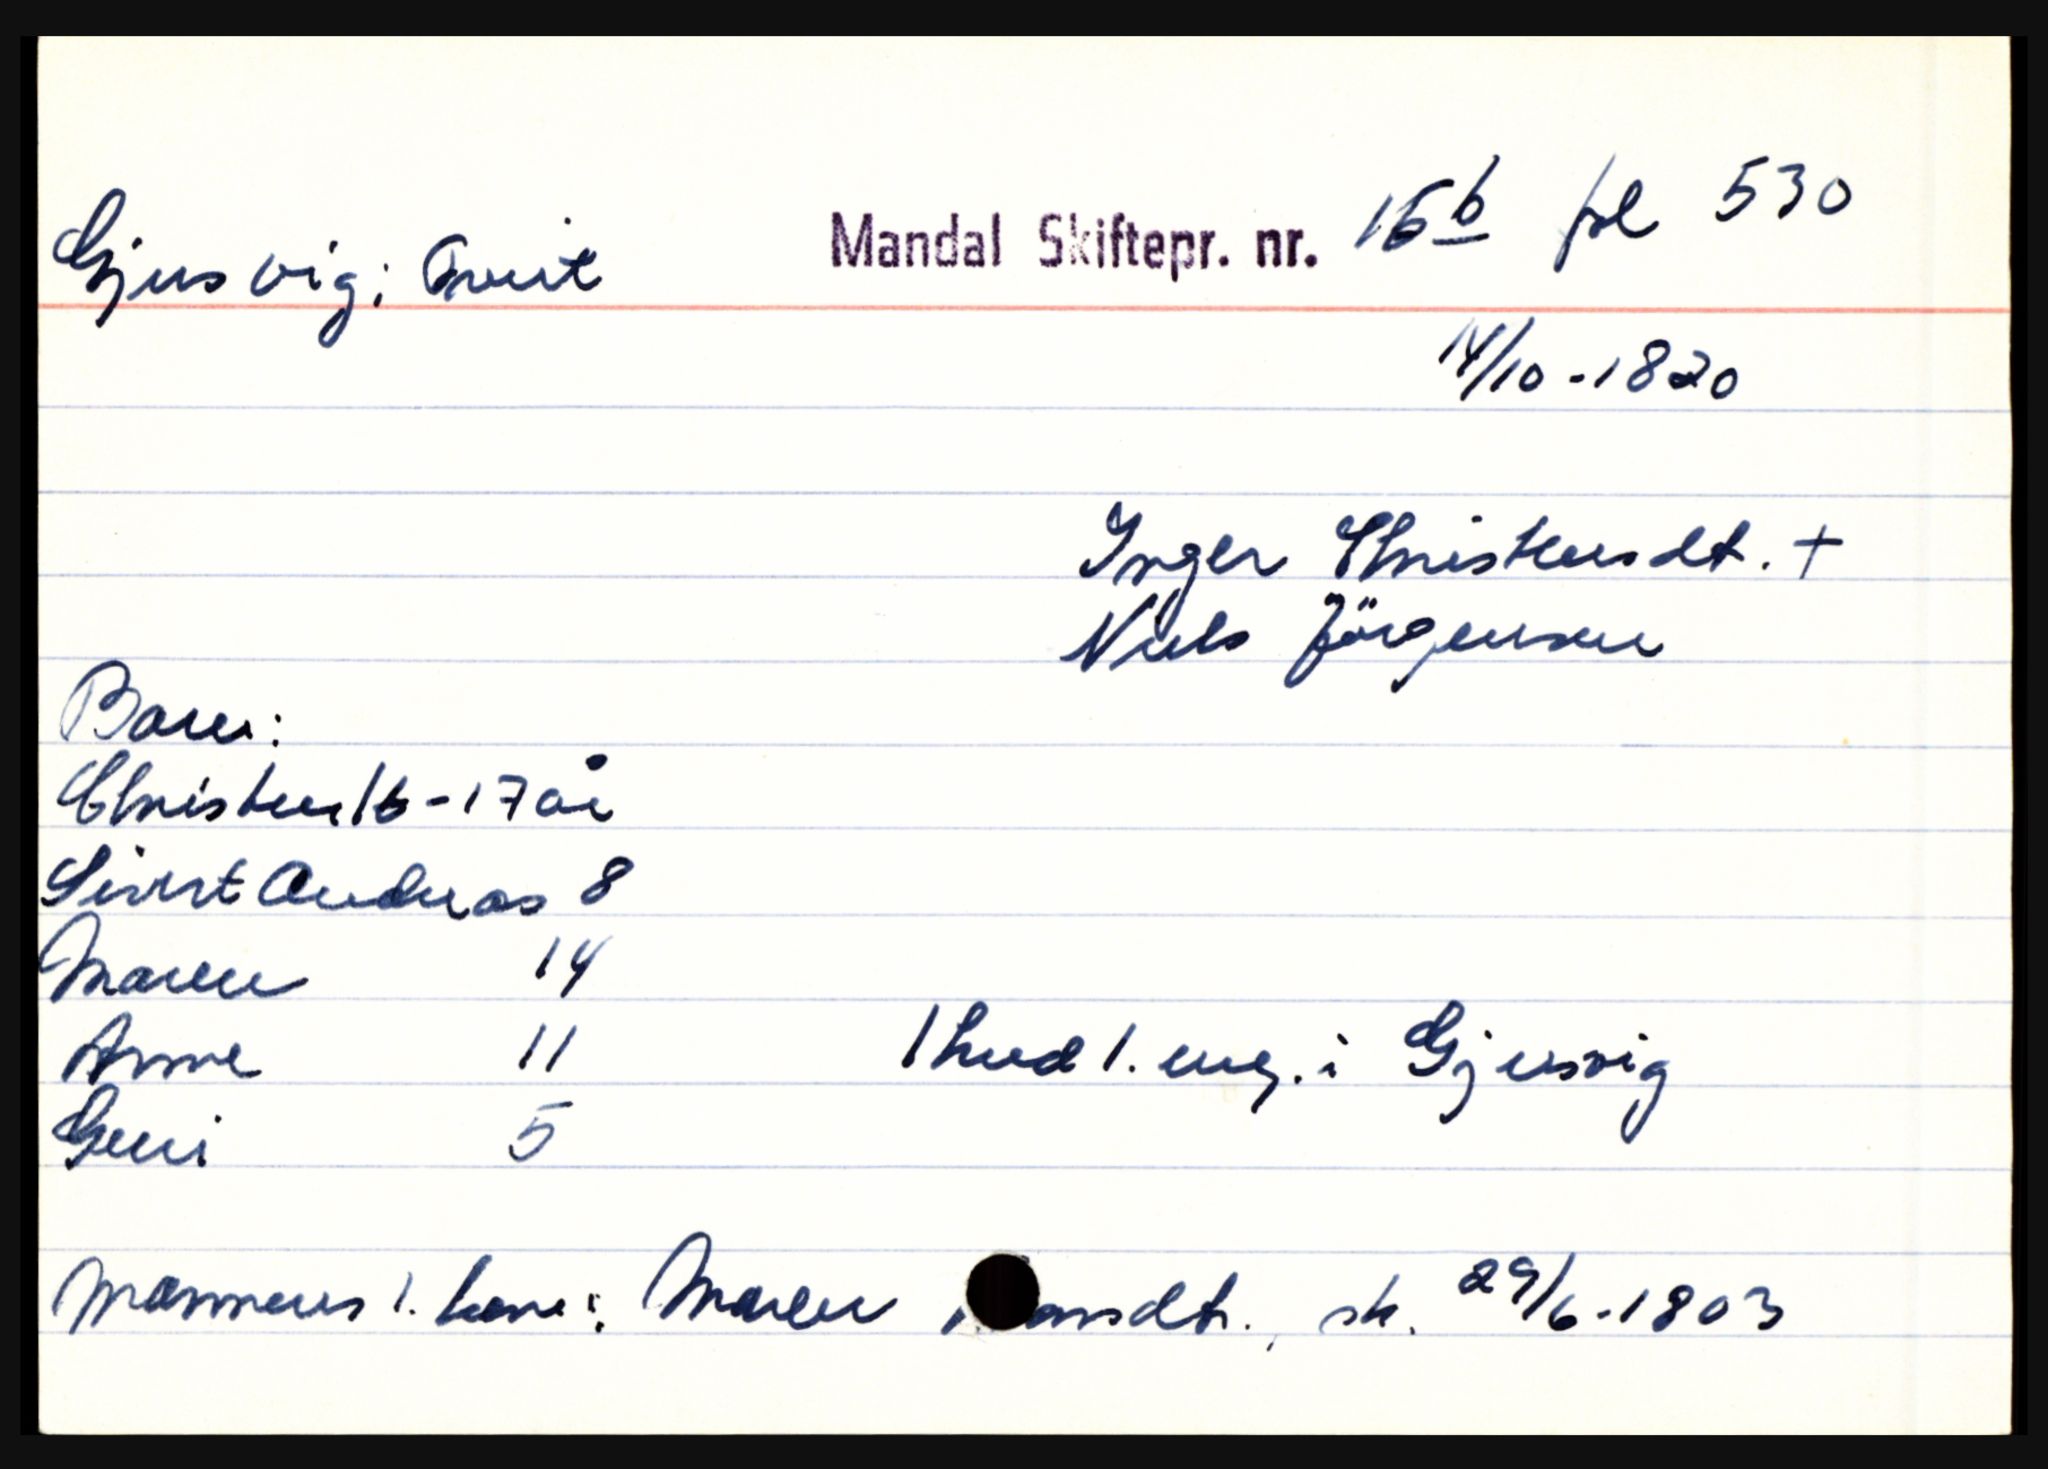 Gjusvig; Tveit Mandal Skiftepr. nr. 16b fol 530
14/10-1820
Inger Christensdt. +
Niels Jörgensen
Barn:
Christen 16-17 år
Sivert Andreas 8
Maren 14
Anne 11 1 hud 1. eng. i Gjusvig
Guri 5
Mannens 1. kone: Maren dt., sk. 29/6-1803